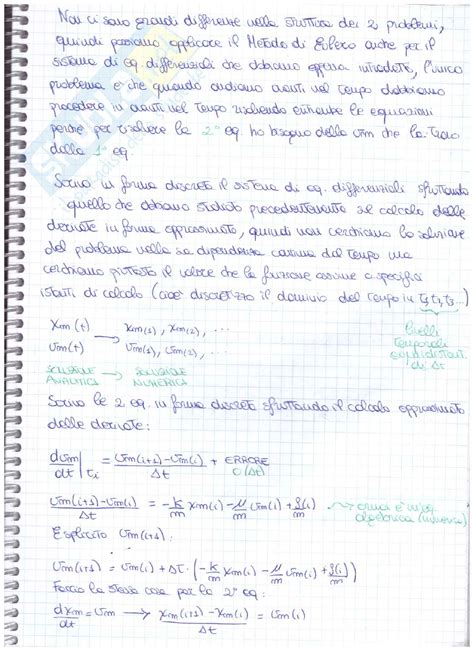 Non ci sono grandi differenze nella struttura dei 2 problemi,
quindi possiamo applicare il Metodo di Eulero anche per il
sistema di eq. differenziali che abbiamo appena introdotto, l'unico
problema è che quando andiamo avanti nel tempo dobbiamo
procedere in avanti nel tempo risolvendo entrambe le equazioni
perché per risolvere la 2° eq. ho bisogno della vm che la trovo
dalla 1° eq.
Scrivo in forma discreta il sistema di eq. differenziali sfruttando
quello che abbiamo studiato precedentemente sul calcolo delle
derivate in forma approssimata, quindi non cerchiamo la soluzione
del problema nella sua dipendenza continua dal tempo ma
cerchiamo piuttosto il valore che la funzione assume a specifici
istanti di calcolo (cioè discretizzo il dominio del tempo in t1,t2,t3...)
xm(t) → xm(1), xm(2), ...
vm(t) → vm(1), vm(2), ...
livelli
temporali
equidistanti
di Δt
SOLUZIONE ANALITICA → SOLUZIONE NUMERICA
Scrivo le 2 eq. in forma discreta sfruttando il calcolo approssimato
delle derivate:
dvm/dt |ti = (vm(i+1) - vm(i))/Δt + ERRORE O(Δt)
(vm(i+1) - vm(i))/Δt = -k/m xm(i) - μ/m vm(i) + f(i)/m → ormai è un'eq. algebrica (numerica)
Esplicito vm(i+1):
vm(i+1) = vm(i) + Δt · (-k/m xm(i) - μ/m vm(i) + f(i)/m)
Faccio la stessa cosa per la 2° eq:
dxm/dt = vm → (xm(i+1) - xm(i))/Δt = vm(i)